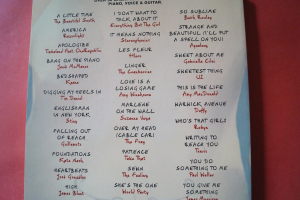 PIANO, VOICE & GUITAR.
A LITTLE TIME
The Beautiful South
AMERICA
Razorlight
APOLOGISE
Timbaland Feat. OneRepublic
BANG ON THE PIANO
Jack McManus
BEDSHAPED
Keane
DIGGING MY HEELS IN
Tim David
ENGLISHMAN IN NEW YORK
Sting
FALLING OUT OF REACH
Guillemots
FOUNDATIONS
Kate Nash
HEARTBEATS
José González
HIGH
James Blunt
I DON'T WANT TO
TALK ABOUT IT
Everything But The Girl
IT MEANS NOTHING
Stereophonics
LES FLEUR
Minnie
LINGER
The Cranberries
LOVE IS A
LOSING GAME
Amy Winehouse
MARLENE
ON THE WALL
Suzanne Vega
OVER MY HEAD
(CABLE CAR)
The Fray
PATIENCE
Take That
SEWN
The Feeling
SHE'S THE ONE
World Party
SO SUBLIME
Beth Rowley
STRANGE AND
BEAUTIFUL (I'LL PUT
A SPELL ON YOU)
Aqualung
SWEET ABOUT ME
Gabriella Cilmi
SWEETEST THING
U2
THIS IS THE LIFE
Amy MacDonald
WARWICK AVENUE
Duffy
WHO'S THAT GIRL
Robyn
WRITING TO
REACH YOU
Travis
YOU DO
SOMETHING TO ME
Paul Weller
YOU GIVE ME
SOMETHING
James Morrison